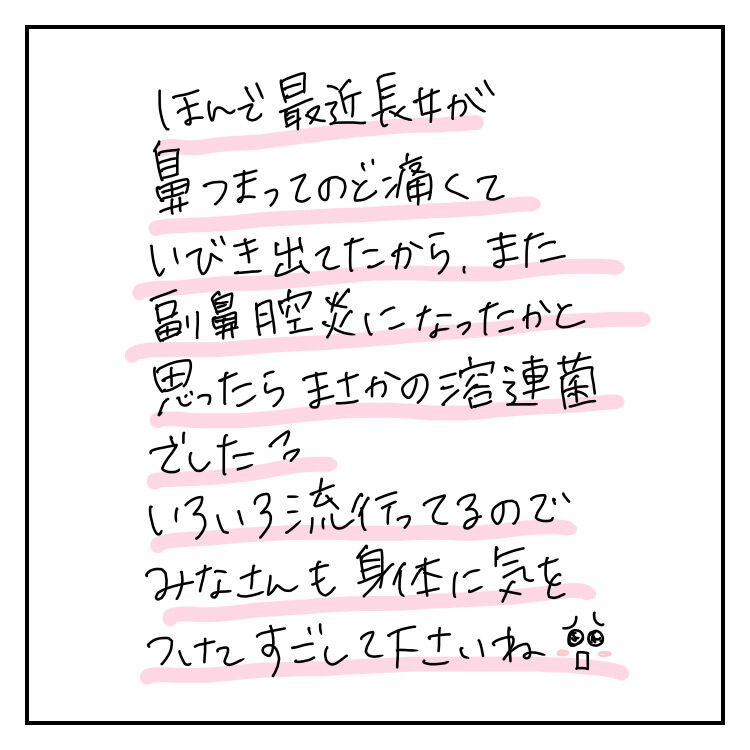 ほんで最近長女が
鼻つまってのど痛くて
いびき出てたから、また
副鼻腔炎になったかと
思ったらまさかの溶連菌
でした
いろいろ流行ってるので
みなさんも身体に気を
つけてすごして下さいね